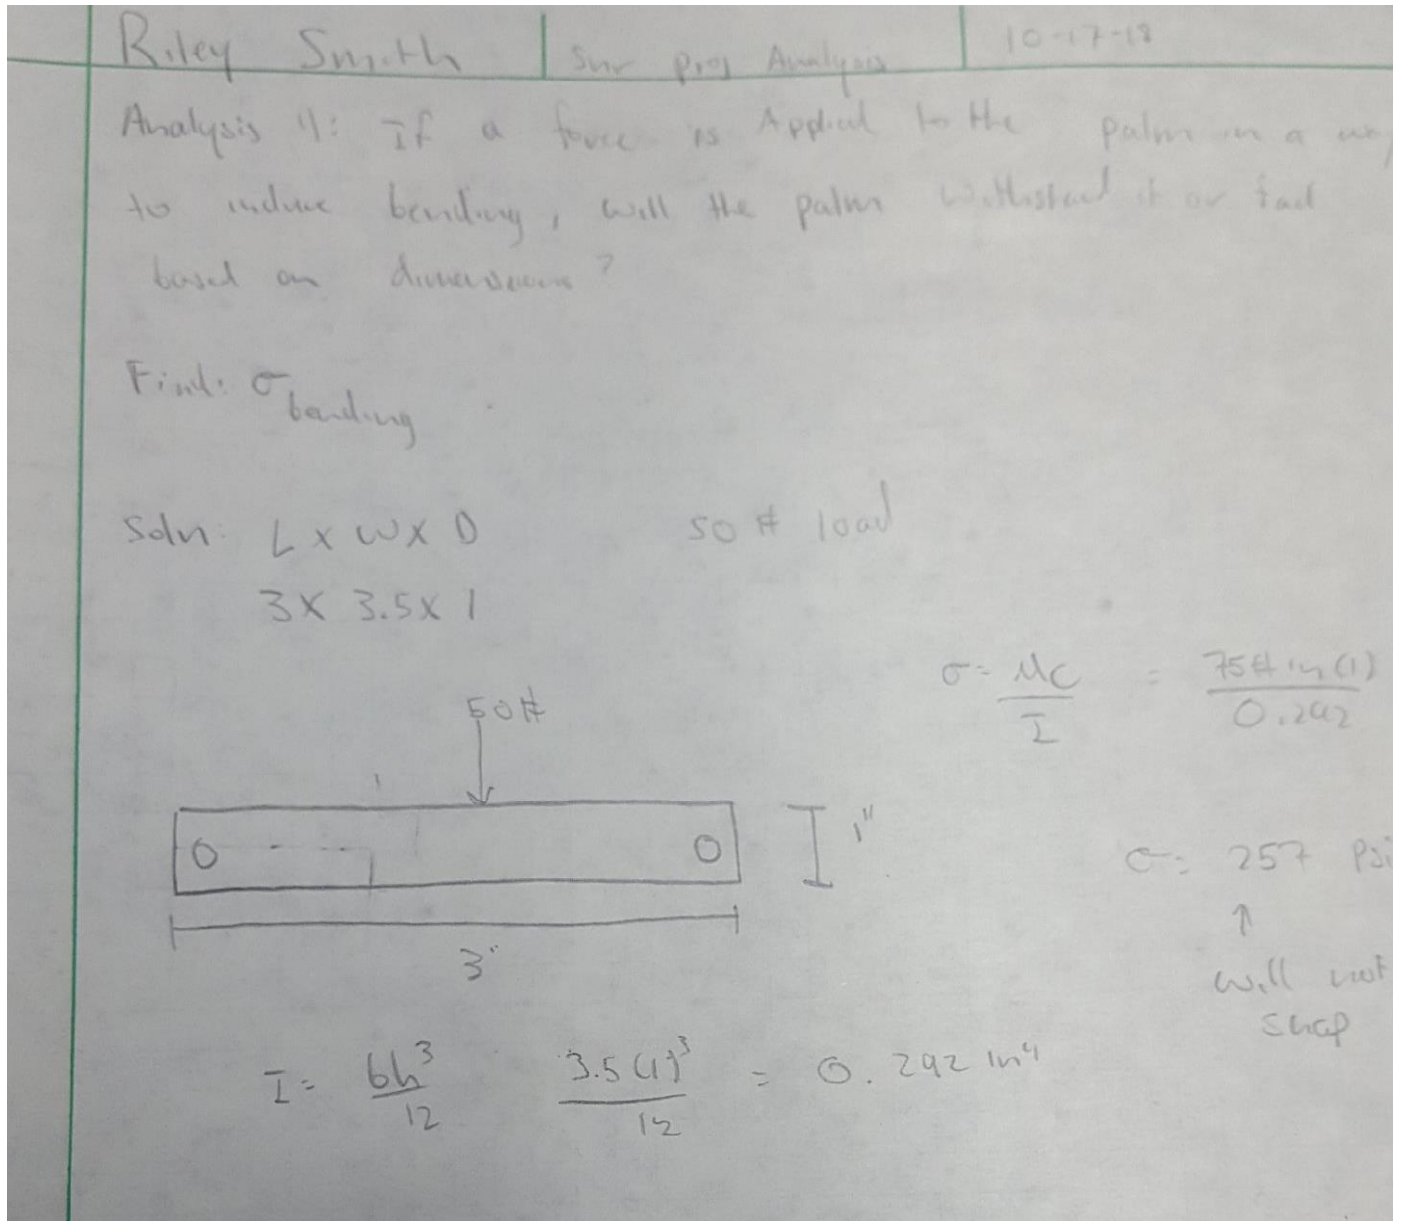 Riley Smith | Snr Proj Analysis | 10-17-18
Analysis 11: If a force is Applied to the palm in a
to induce bending, will the palm withstand it or fail
based on dimensions?
Find: σ bending
Soln: L x W x D 50 # load
3 x 3.5 x 1
σ = Mc / I = 75# in (1) / 0.292
50#
1"
σ = 257 Psi
↑
will not
snap
3"
I = bh³ / 12 3.5 (1)³ / 12 = 0.292 in⁴